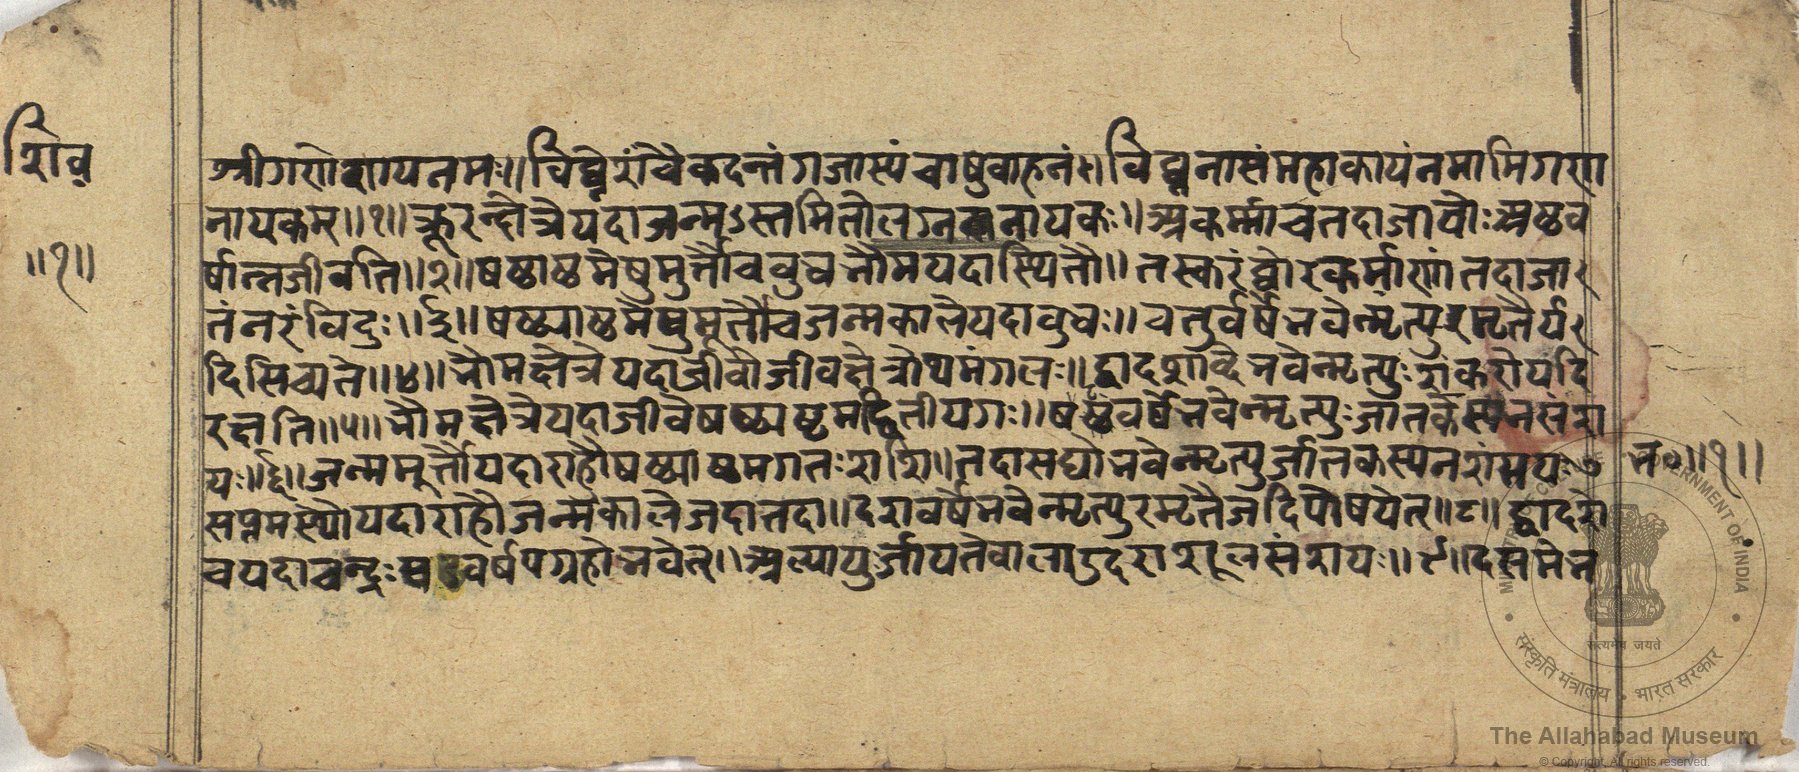 शिव
॥१॥
श्रीगणेशायनमः॥विघ्नेशंचैकदन्तंगजास्यंचाषुवाहनं।विघ्ननासंमहाकायंनमामिगणा
नायकम्॥१॥क्रूरक्षेत्रेयदाजन्मऽस्तमितोलग्ननायकः॥अकर्म्माचतदाजावोःअष्टव
र्षान्तजीवति॥२॥षष्ठाष्टमेषुमुर्त्तौचवुधभौमयदास्थितौ॥तस्करंघोरकर्माणांतदाजा
तंनरंविदुः॥३॥षष्ठ्याष्टमेषुमूर्तौचजन्मकालेयदावुधः॥चतुर्वर्षेभवेन्मृत्युरमृतैर्य
दिसिच्यते॥४॥भौमक्षेत्रेयदाजीवोजीवक्षेत्रोथमंगलः॥द्वादशाव्देभवेन्मृत्युःशंकरोयदि
रक्षति॥५॥भौमक्षेत्रेयदाजीवैषष्ठ्यष्टमद्वितीयगः॥षष्ठवर्षेभवेन्मृत्युःजातकस्यनसंश
यः॥६॥जन्ममूर्त्तौयदाराहौषष्ठ्याष्टमगतःशशि॥तदासद्योभवेन्मृत्युर्जातकस्यनशंसयः७
सप्तमस्थ्योयदाराहौजन्मकालेजदातदा॥दशवर्षेभवेन्मृत्युरमृतैजदिपोषयेत्॥८॥द्वादशे
चयदाचन्द्रःवर्षपग्रहोभवेत्॥अल्पायुर्जायतेवालाऽदशशूलसंशयः॥९॥दसमेभ
भ०॥१॥
MINISTRY OF CULTURE GOVERNMENT OF INDIA
सत्यमेव जयते
संस्कृति मंत्रालय • भारत सरकार
The Allahabad Museum
© Copyright, All rights reserved.